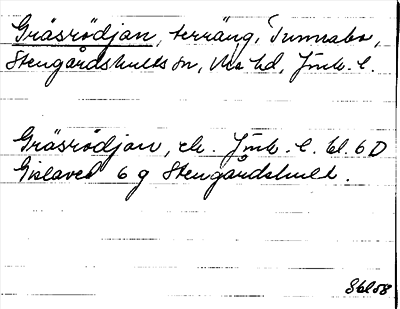 Gräsrödjan, terräng, Tunnabo,
Stengårdshults sn, Mo hd, Jönk. l.
Gräsrödjan, ek. Jönk. l. bl. 6 D
Gislaved 6 g Stengårdshult.